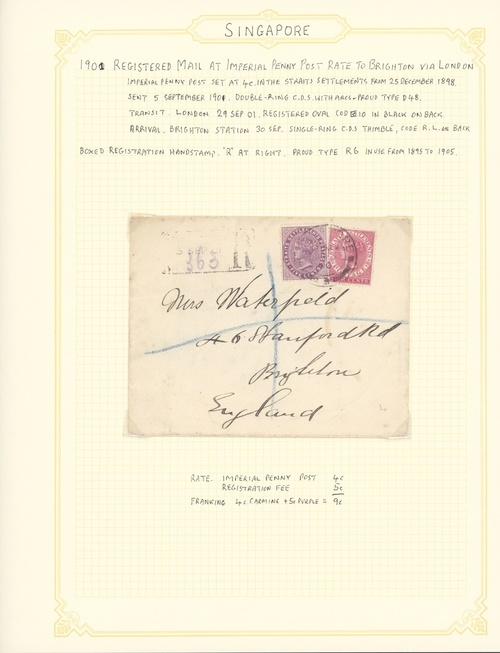 SINGAPORE
1901 REGISTERED MAIL AT IMPERIAL PENNY POST RATE TO BRIGHTON VIA LONDON
IMPERIAL PENNY POST SET AT 4C. IN THE STRAITS SETTLEMENTS FROM 25 DECEMBER 1898.
SENT 5 SEPTEMBER 1901. DOUBLE-RING C.D.S. WITH ARCS - PROUD TYPE D48.
TRANSIT. LONDON 29 SEP 01. REGISTERED OVAL COD 10 IN BLACK ON BACK.
ARRIVAL. BRIGHTON STATION 30 SEP. SINGLE-RING C.D.S THIMBLE, CODE R.L. ON BACK
BOXED REGISTRATION HANDSTAMP. 'R' AT RIGHT. PROUD TYPE R6 IN USE FROM 1895 TO 1905.
R
363
Mrs Waterfield
46 Stanford Rd
Brighton
England
RATE. IMPERIAL PENNY POST 4c
REGISTRATION FEE 5c
FRANKING 4c CARMINE + 5c PURPLE = 9c